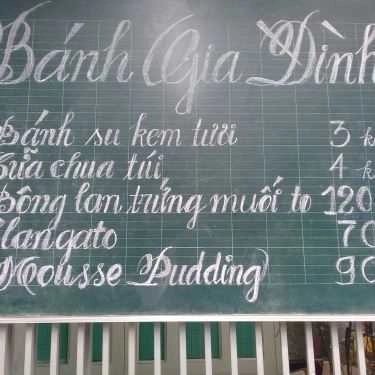 Bánh Gia Đình
Bánh su kem tươi 3 k
Sữa chua túi 4 k
Bông lan trứng muối to 120
Flangato 70
Mousse Pudding 90